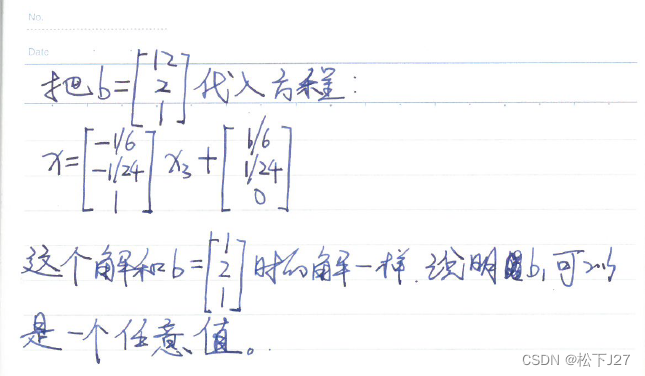 No.
Date
把b=[12 2 1]代入方程:
x=[-1/6 -1/24 1] x₃+[1/6 1/24 0]
这个解和b=[1 2 1]时的解一样.说明b,可以
是一个任意值。
CSDN @松下J27